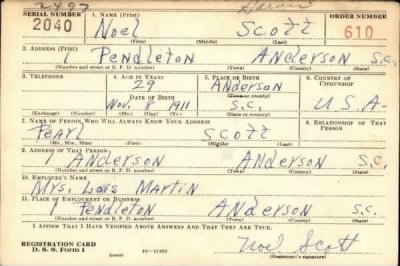 2497
SERIAL NUMBER 1. NAME (Print) ORDER NUMBER
2040 Noel Scott 610
(First) (Middle) (Last)
2. ADDRESS (Print)
1 Pendleton Anderson S.C.
(Number and street or R. F. D. number) (Town) (County) (State)
3. TELEPHONE 4. AGE IN YEARS 5. PLACE OF BIRTH 6. COUNTRY OF CITIZENSHIP
29 Anderson
DATE OF BIRTH (Town or county)
Nov. 8 1911 S.C. U.S.A-
(Exchange) (Number) (Mo.) (Day) (Yr.) (State or country)
7. NAME OF PERSON WHO WILL ALWAYS KNOW YOUR ADDRESS 8. RELATIONSHIP OF THAT PERSON
Pearl Scott
(Mr., Mrs., Miss) (First) (Middle) (Last)
9. ADDRESS OF THAT PERSON
1 Anderson Anderson S.C.
(Number and street or R. F. D. number) (Town) (County) (State)
10. EMPLOYER'S NAME
Mrs. Lois Martin
11. PLACE OF EMPLOYMENT OR BUSINESS
1 Pendleton Anderson S.C.
(Number and street or R. F. D. number) (Town) (County) (State)
I AFFIRM THAT I HAVE VERIFIED ABOVE ANSWERS AND THAT THEY ARE TRUE.
REGISTRATION CARD
D. S. S. Form 1 (over) Noel Scott
(Registrant's signature)